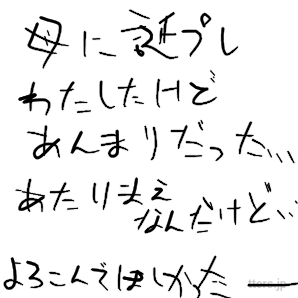 母に誕プレ
わたしたけど
あんまりだった...
あたりまえ
なんだけど...
よろこんでほしかったー